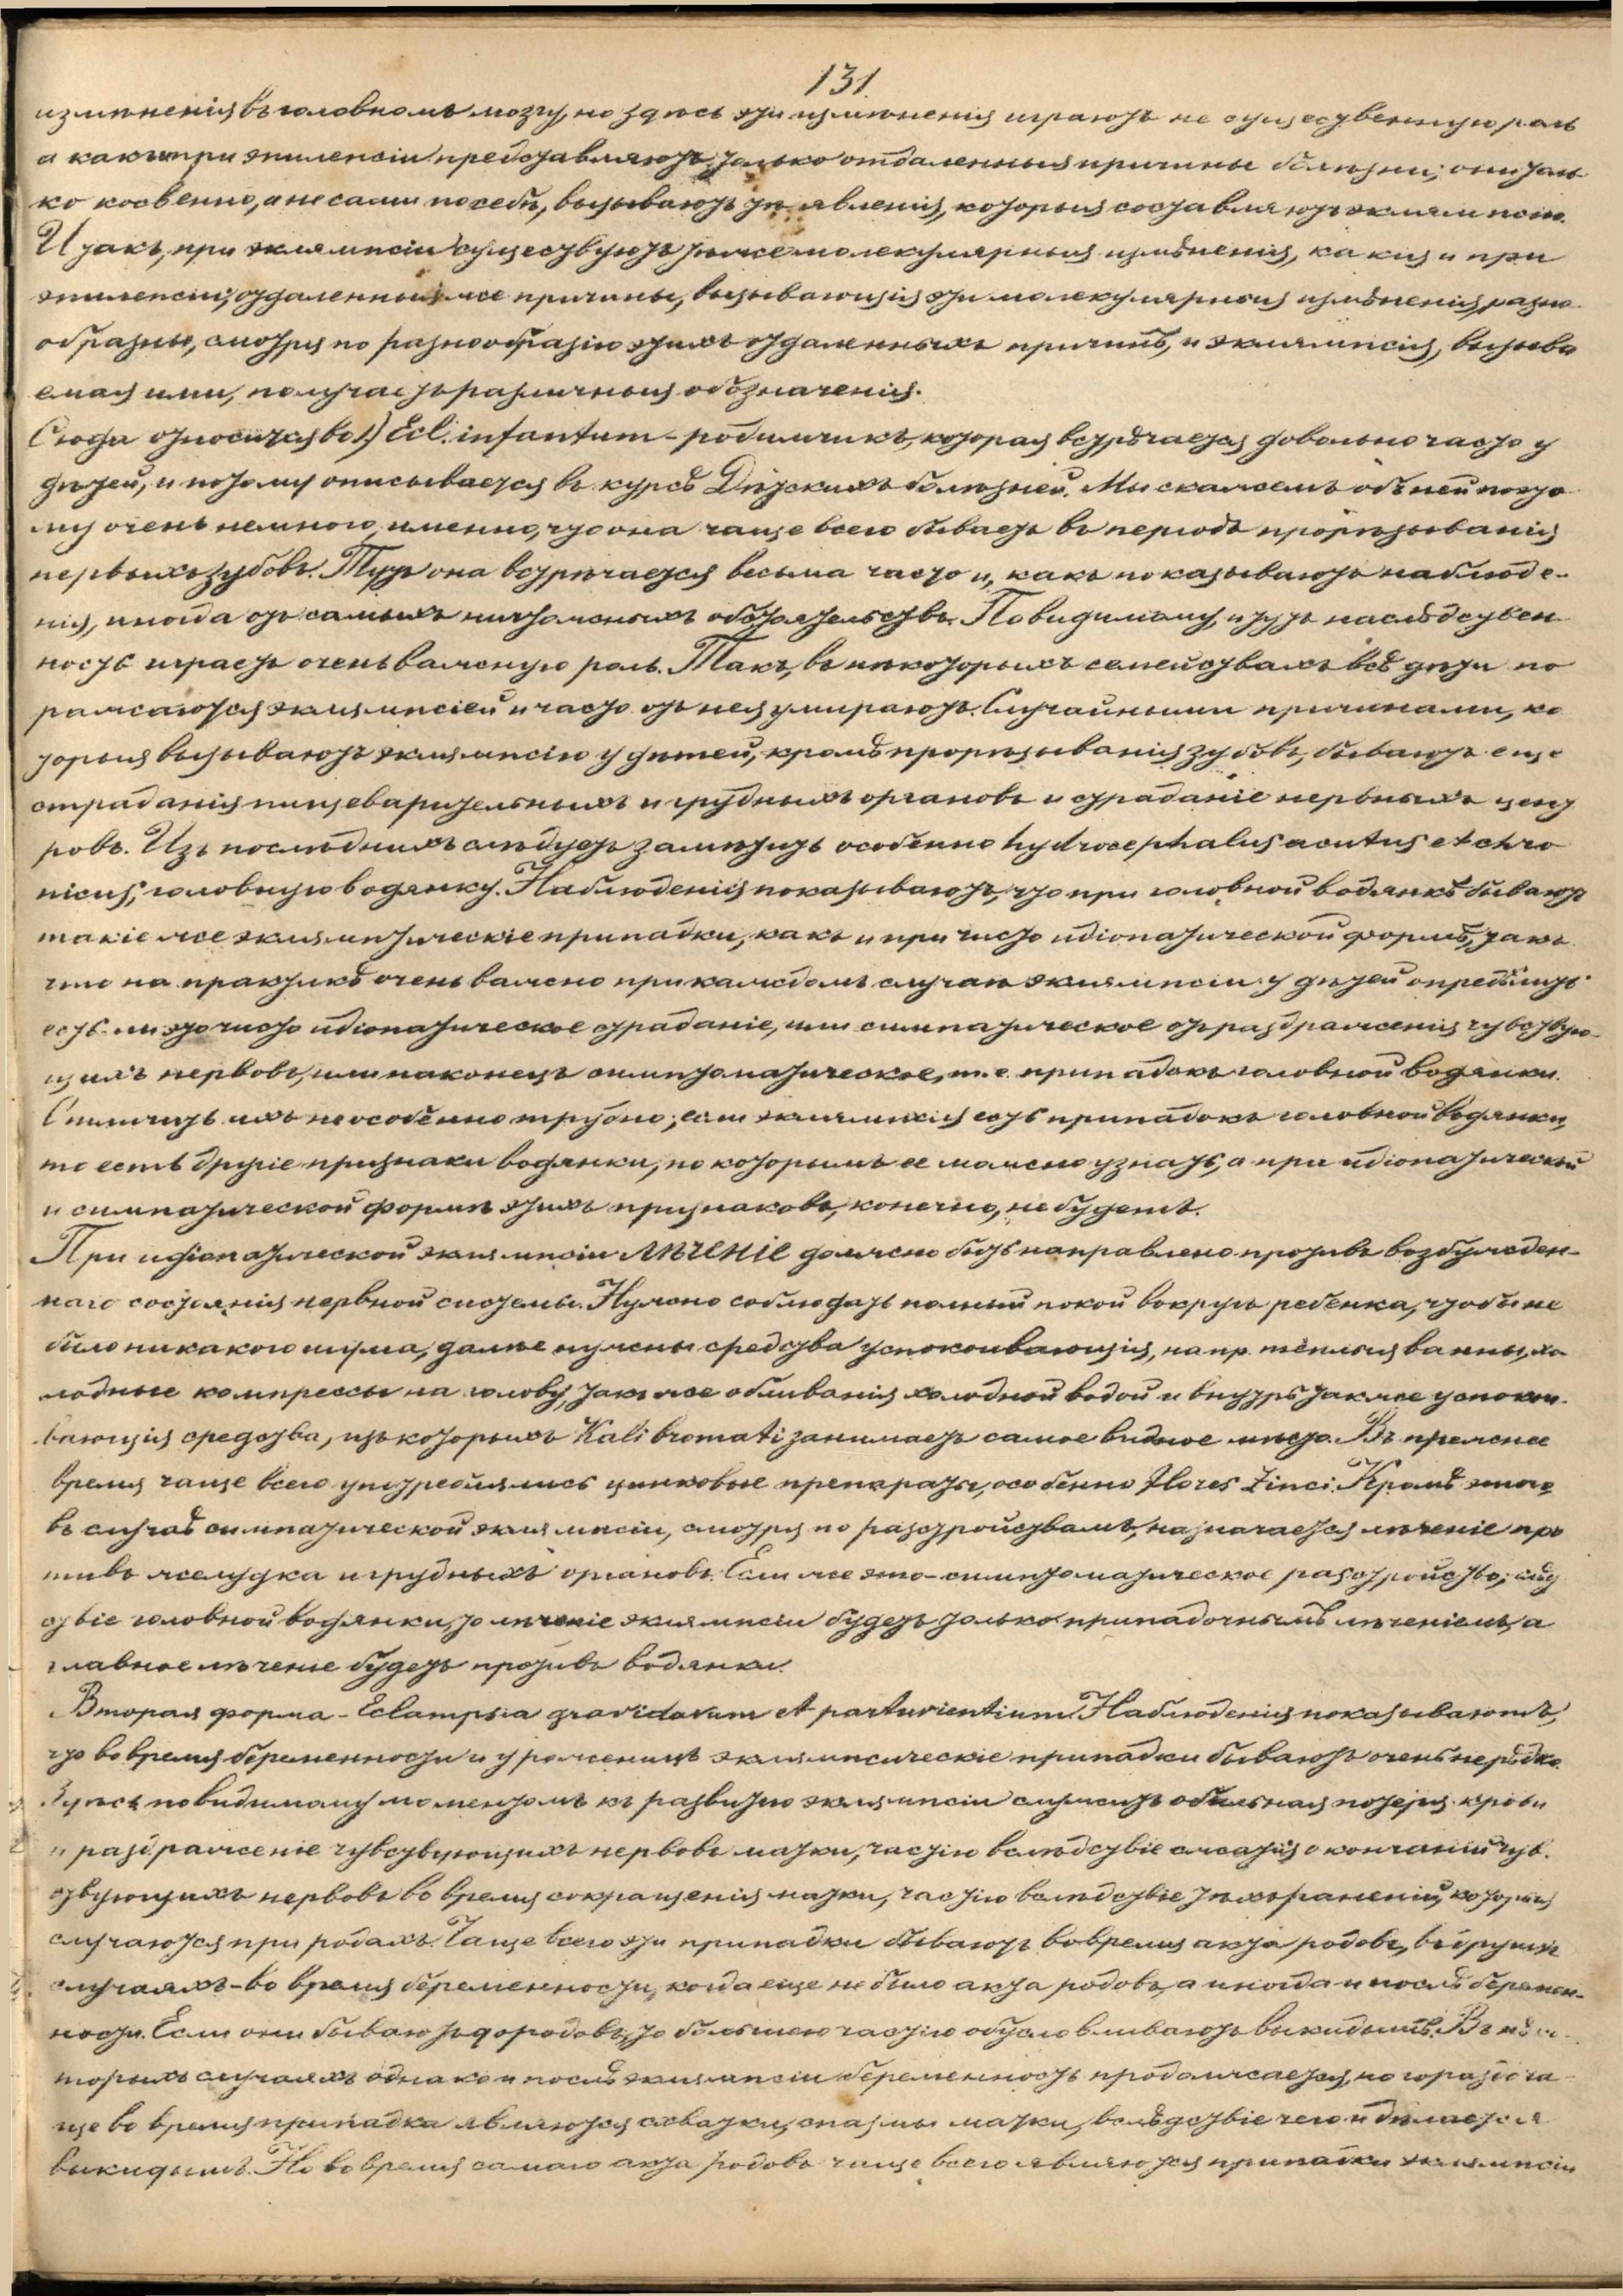 131.
измѣненія въ головномъ мозгу, но здѣсь эти измѣненія играютъ не существенную роль
а какъ и при эпилепсіи представляютъ только отдаленныя причины болѣзни; они толь-
ко косвенно, а не сами по себѣ, вызываютъ тѣ явленія, которыя составляютъ эклямпсію.
Итакъ, при эклямпсіи существуютъ тѣже молекулярныя измѣненія, какія и при
эпилепсіи; отдаленныя же причины, вызывающія эти молекулярныя измѣненія, разно-
образны, смотря по разнообразію этихъ отдаленныхъ причинъ, и эклямпсія, вызыва
емая ими, получаетъ различныя обозначенія.
Сюда относится во 1) Ecl. infantum - родимчикъ, которая встрѣчается довольно часто у
дѣтей, и потому описывается въ курсѣ Дѣтскихъ болѣзней. Мы скажемъ объ ней пото
му очень немного, именно, что она чаще всего бываетъ въ періодъ прорѣзыванія
первыхъ зубовъ. Тутъ она встрѣчается весьма часто и, какъ показываютъ наблюде-
нія, иногда отъ самыхъ ничтожныхъ обстоятельствъ. По видимому, и тутъ наслѣдствен-
ность играетъ очень важную роль. Такъ, въ нѣкоторыхъ семействахъ всѣ дѣти по
ражаются эклямпсіей и часто отъ нея умираютъ. Случайными причинами, ко
торыя вызываютъ эклямпсію у дѣтей, кромѣ прорѣзыванія зубовъ, бываютъ еще
страданія пищеварительныхъ и грудныхъ органовъ и страданіе нервныхъ цент
ровъ. Изъ послѣднихъ слѣдуетъ замѣтить особенно hydrocephalus acutus et chro
nicus, головную водянку. Наблюденія показываютъ, что при головной водянкѣ бываютъ
такіе же эклямптическіе припадки, какъ и при чисто идіопатической формѣ, такъ
что на практикѣ очень важно при каждомъ случаѣ эклямпсіи у дѣтей опредѣлить
есть-ли это чисто идіопатическое страданіе, или симпатическое отъ раздраженія чувствую-
щихъ нервовъ, или наконецъ симптоматическое, т.е. припадокъ головной водянки.
Отличить ихъ не особенно трудно; если эклямпсія есть припадокъ головной водянки,
то есть другіе признаки водянки, по которымъ ее можно узнать, а при идіопатической
и симпатической формѣ этихъ признаковъ, конечно, не будетъ.
При идіопатической эклямпсіи лѣченіе должно быть направлено противъ возбужден-
наго состоянія нервной системы. Нужно соблюдать полный покой вокругъ ребенка, чтобы не
было никакого шума, далѣе нужны средства успокоивающія, напр. тёплыя ванны, хо
лодные компрессы на голову, также обливанія холодной водой и внутрь также успокои-
вающія средства, изъ которыхъ Kali bromati занимаетъ самое видное мѣсто. Въ прежнее
время чаще всего употреблялись цинковые препараты, особенно flores Zinci. Кромѣ этого
въ случаѣ симпатической эклямпсіи, смотря по разстройствамъ, назначается лѣченіе про
тивъ желудка и грудныхъ органовъ. Если же это - симптоматическое разстройство, слѣд
ствіе головной водянки, то лѣченіе эклямпсіи будетъ только припадочнымъ лѣченіемъ, а
главное лѣченіе будетъ противъ водянки.
Вторая форма - Eclampsia gravidarum et parturientium. Наблюденія показываютъ,
что во время беременности и у роженицъ эклямпсическіе припадки бываютъ очень нерѣдко.
Здѣсь повидимому моментомъ къ развитію эклямпсіи служитъ обильная потеря крови
и раздраженіе чувствующихъ нервовъ матки, частію вслѣдствіе сжатія окончаній чув-
ствующихъ нервовъ во время сокращенія матки, частію вслѣдствіе тѣхъ раненій, которыя
случаются при родахъ. Чаще всего эти припадки бываютъ во время акта родовъ, въ другихъ
случаяхъ - во время беременности, когда еще не было акта родовъ, а иногда и послѣ беремен-
ности. Если они бываютъ до родовъ, то большею частію обусловливаютъ выкидышъ. Въ нѣко-
торыхъ случаяхъ однако и послѣ эклямпсіи беременность продолжается, но гораздо ча-
ще во время припадка являются схватки, спазмы матки, вслѣдствіе чего и дѣлается
выкидышъ. Но во время самаго акта родовъ чаще всего являются припадки эклямпсіи